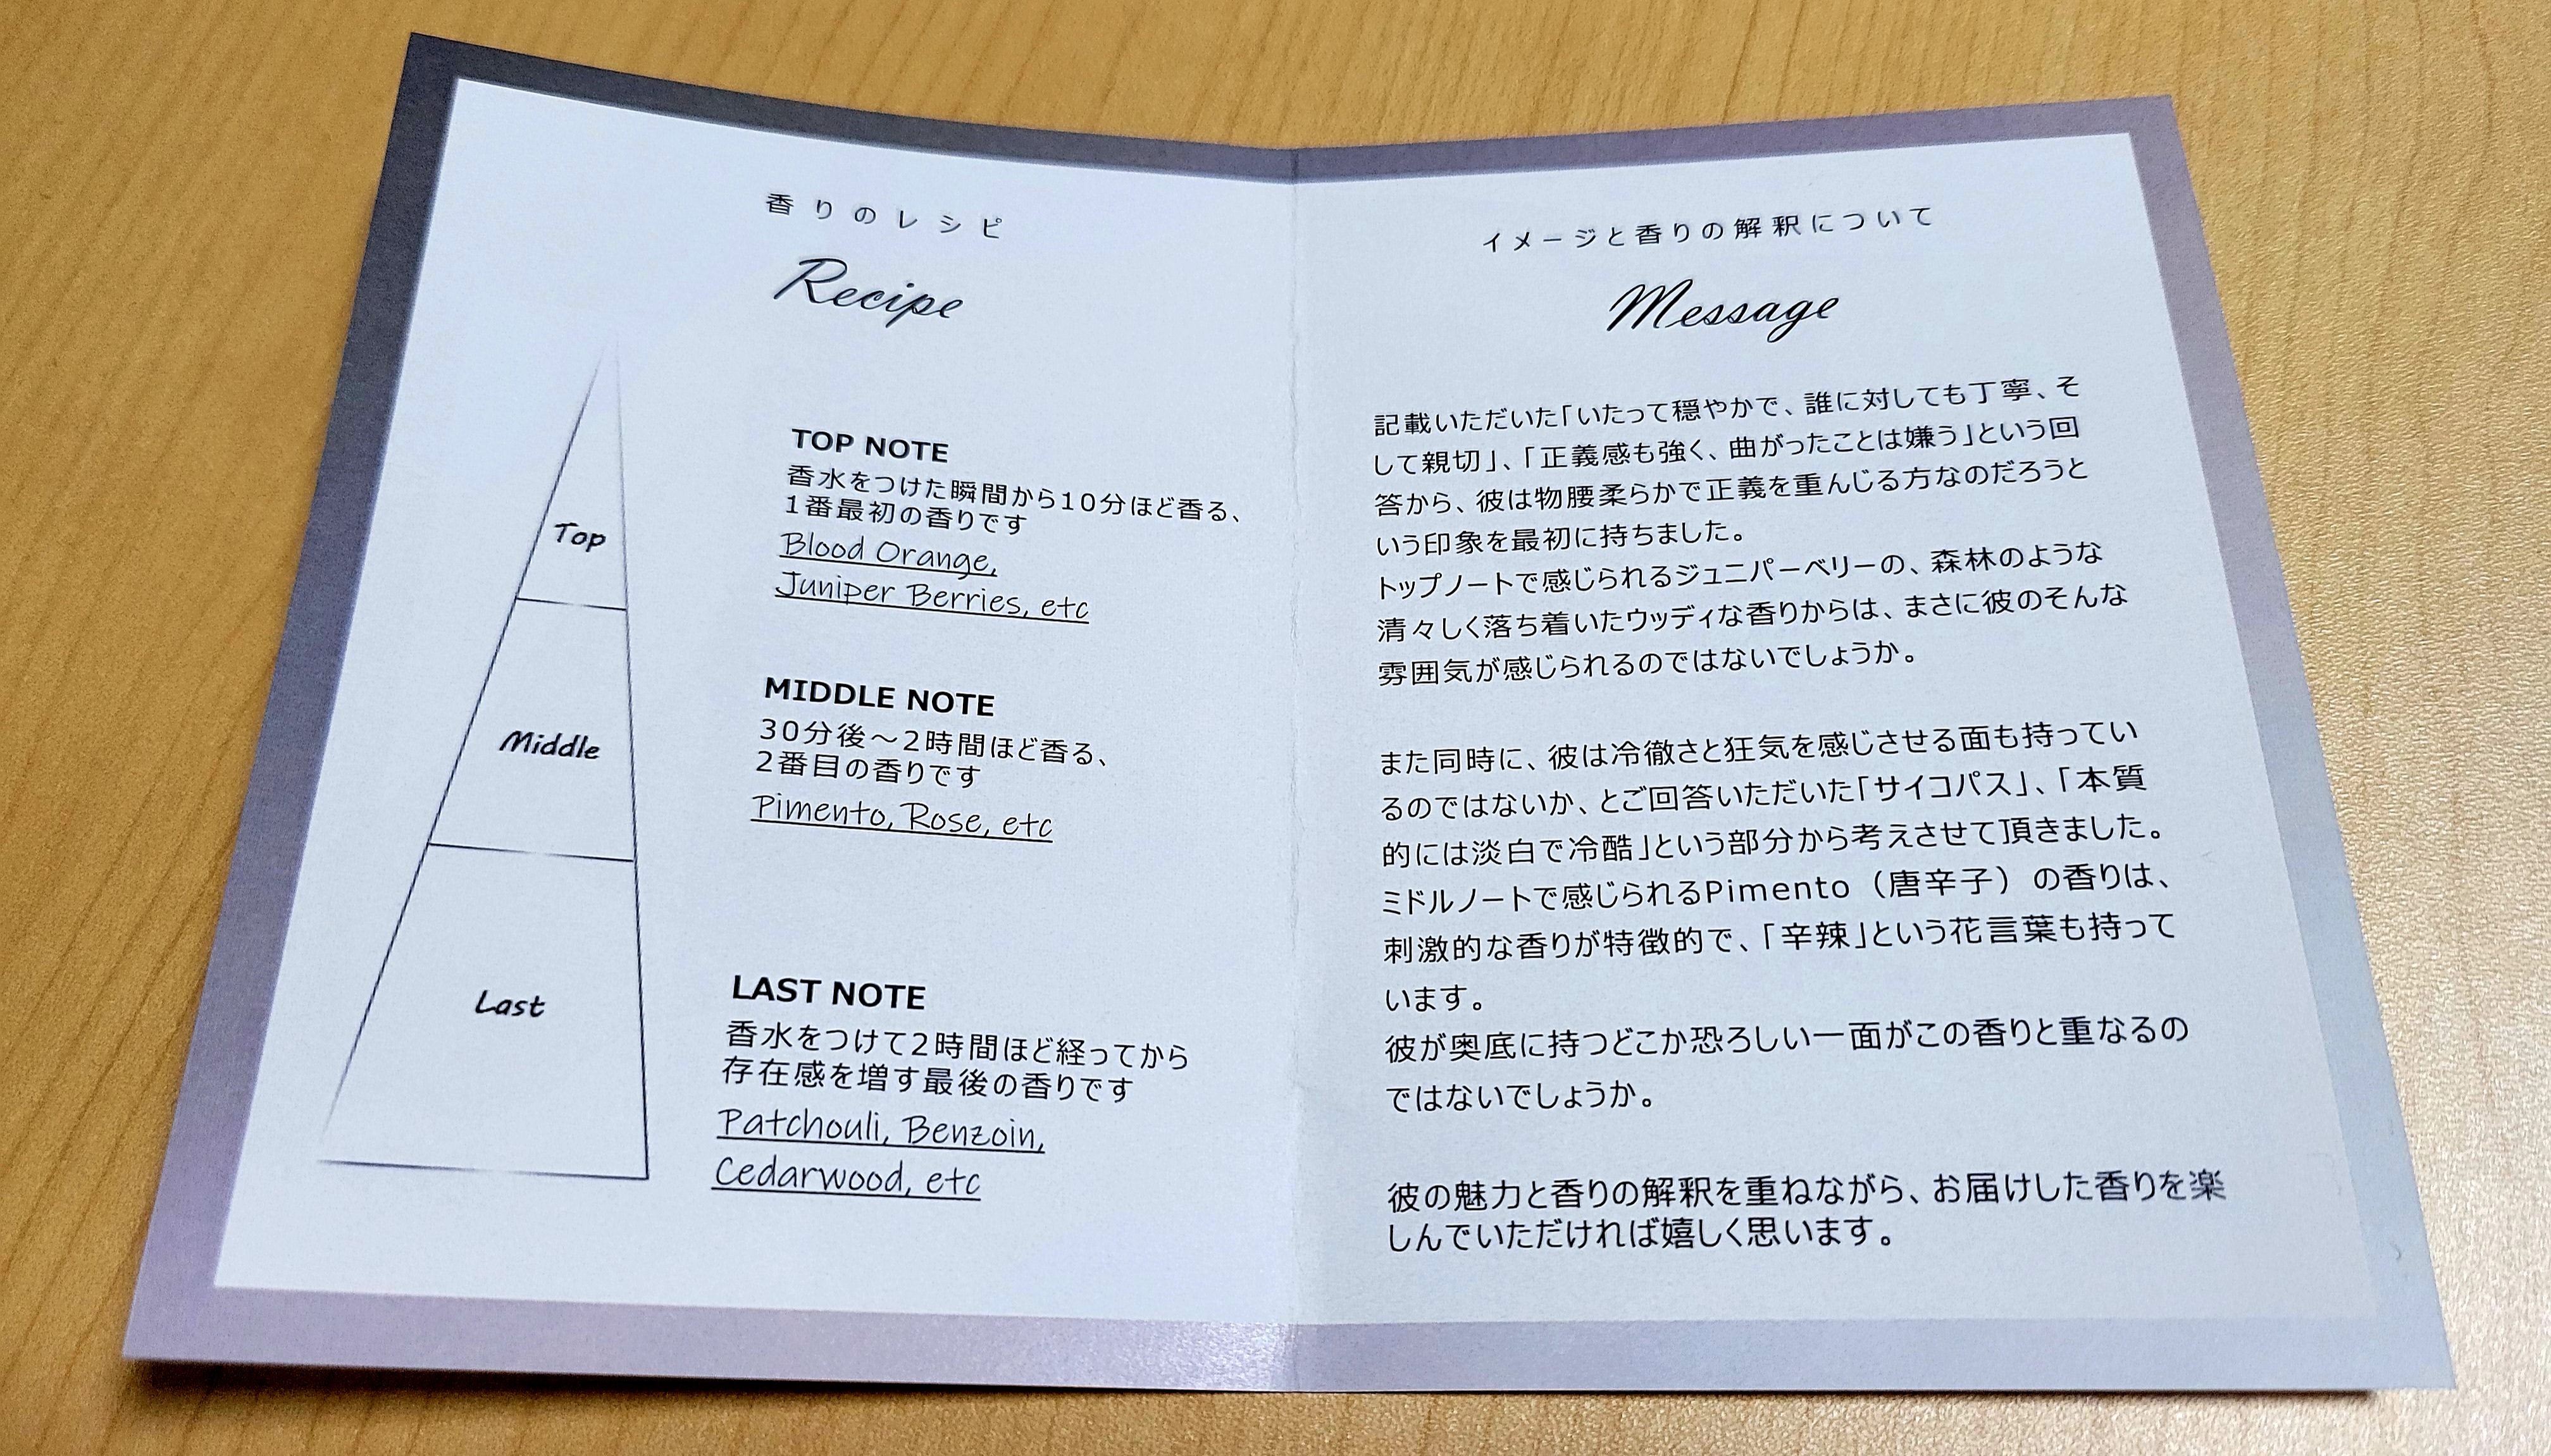 香りのレシピ
Recipe
Top
Middle
Last
TOP NOTE
香水をつけた瞬間から10分ほど香る、
1番最初の香りです
Blood Orange,
Juniper Berries, etc
MIDDLE NOTE
30分後～2時間ほど香る、
2番目の香りです
Pimento, Rose, etc
LAST NOTE
香水をつけて2時間ほど経ってから
存在感を増す最後の香りです
Patchouli, Benzoin,
Cedarwood, etc
イメージと香りの解釈について
Message
記載いただいた「いたって穏やかで、誰に対しても丁寧、そ
して親切」、「正義感も強く、曲がったことは嫌う」という回
答から、彼は物腰柔らかで正義を重んじる方なのだろうと
いう印象を最初に持ちました。
トップノートで感じられるジュニパーベリーの、森林のような
清々しく落ち着いたウッディな香りからは、まさに彼のそんな
雰囲気が感じられるのではないでしょうか。
また同時に、彼は冷徹さと狂気を感じさせる面も持ってい
るのではないか、とご回答いただいた「サイコパス」、「本質
的には淡白で冷酷」という部分から考えさせて頂きました。
ミドルノートで感じられるPimento（唐辛子）の香りは、
刺激的な香りが特徴的で、「辛辣」という花言葉も持って
います。
彼が奥底に持つどこか恐ろしい一面がこの香りと重なるの
ではないでしょうか。
彼の魅力と香りの解釈を重ねながら、お届けした香りを楽
しんでいただければ嬉しく思います。